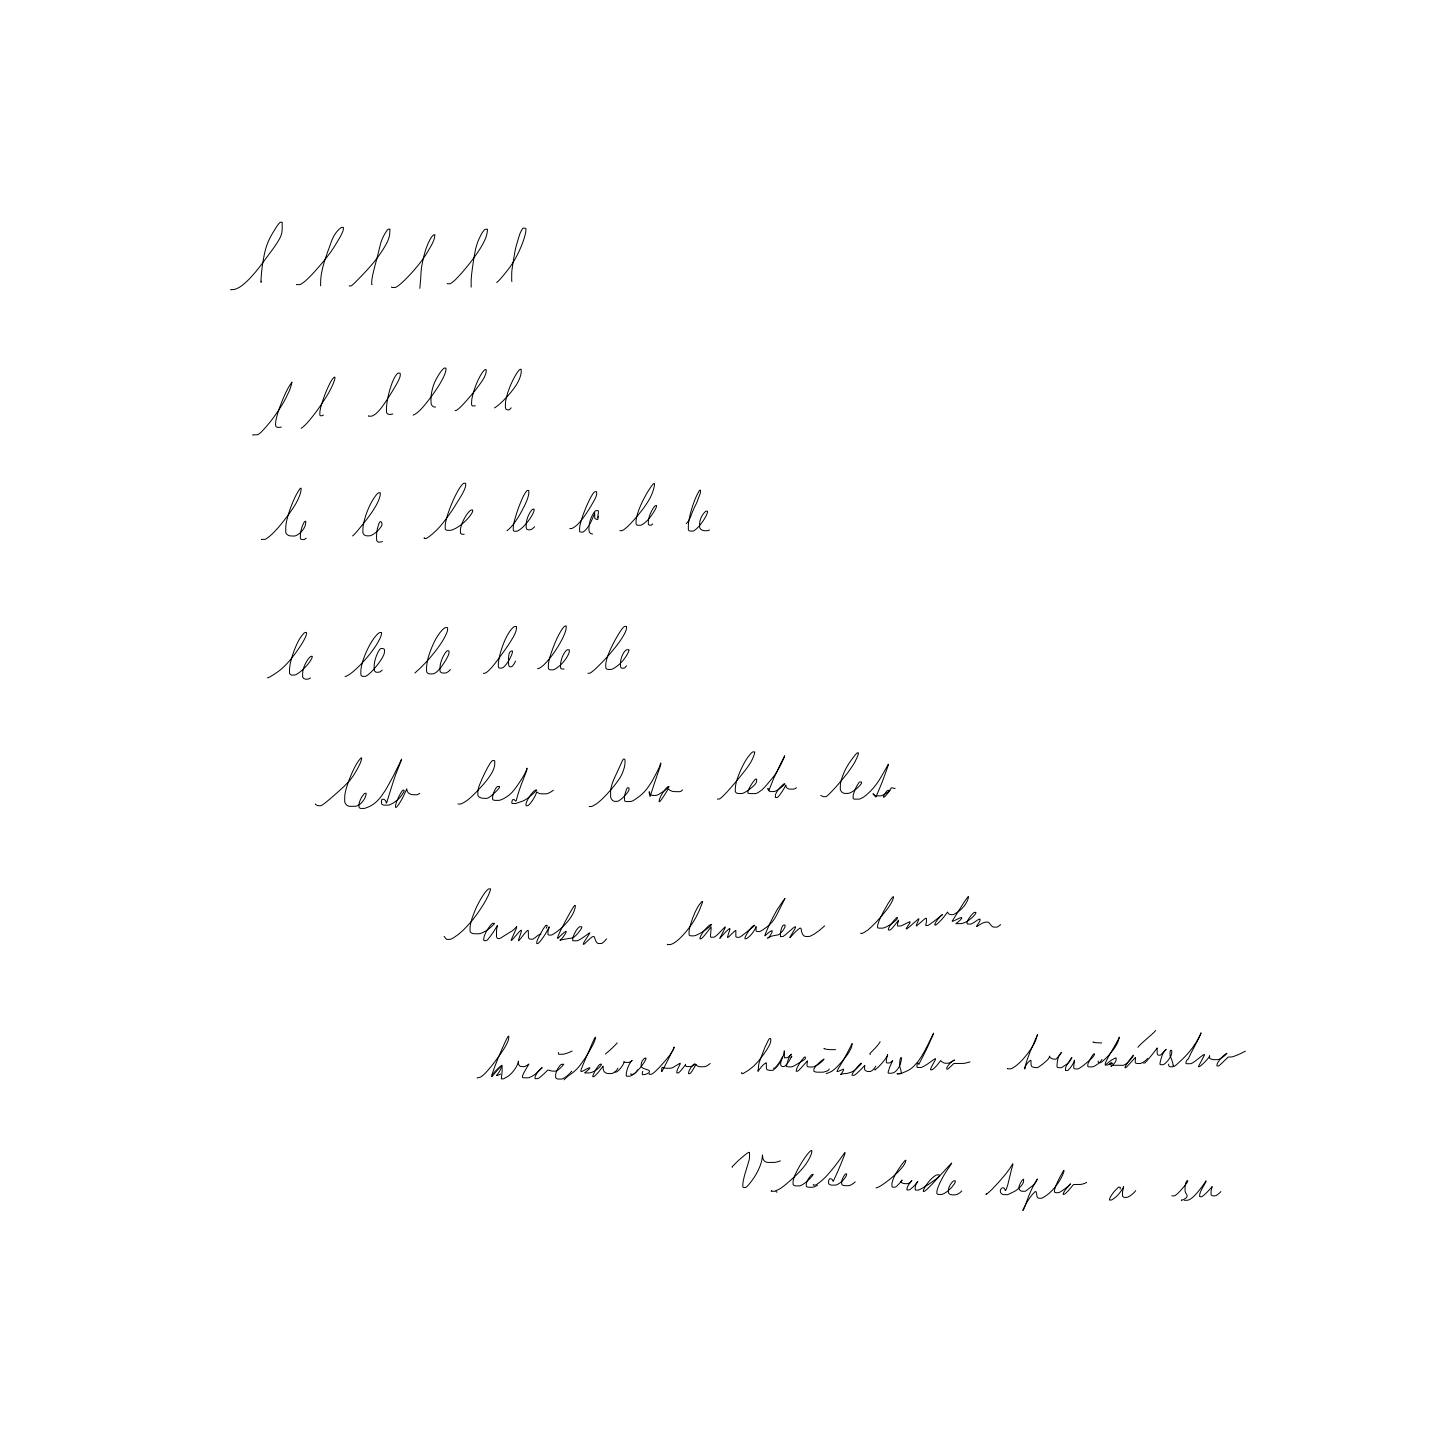 l l l l l l
l l l l l l
le le le le le le le
le le le le le le
leto leto leto leto leto
lamoken lamoken lamoken
hračkárstvo hračkárstvo hračkárstvo
V lete bude teplo a su